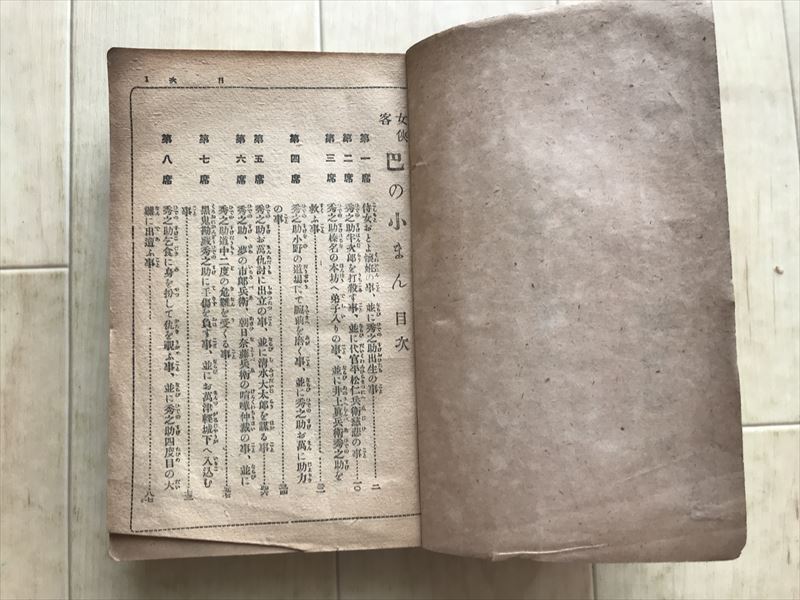 目次 1
女俠客 巴の小まん 目次
第一席 侍女おとよ懐姙の事、並に秀之助出生の事……二
第二席 秀之助牛次郎を打殺す事、並に代官平松仁兵衛慈悲の事……一〇
第三席 秀之助榛名の本坊へ弟子入りの事、並に井上眞兵衛秀之助を
救ふ事……
第四席 秀之助小野の道場にて腕前を磨く事、並に秀之助お萬に助力
の事……
第五席 秀之助お萬仇討に出立の事、並に淸水大太郎を謀る事……
第六席 秀之助、夢の市郎兵衛、朝日奈藤兵衛の喧嘩仲裁の事、並に
秀之助道中二度の危難を受くる事……
第七席 黑鬼勘藏秀之助に手傷を負す事、並にお萬津輕城下へ入込む
事……
第八席 秀之助乞食に身を扮して仇を覗ふ事、並に秀之助四度目の大
難に出遭ふ事……八七